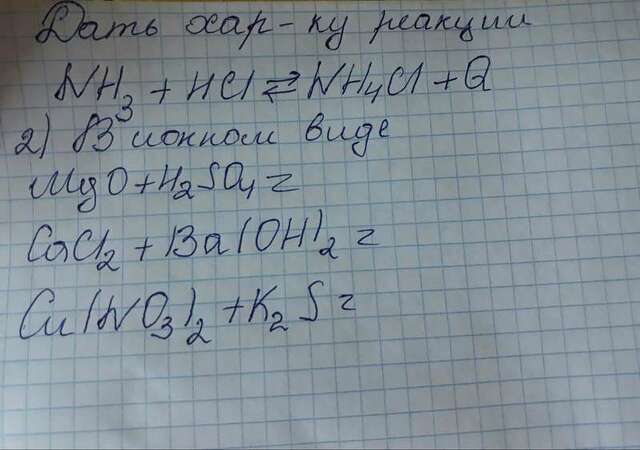 Дать хар-ку реакции
NH3 + HCl ⇄ NH4Cl + Q
2) В ионном виде
MgO + H2SO4 =
CaCl2 + Ba(OH)2 =
Cu(NO3)2 + K2S =